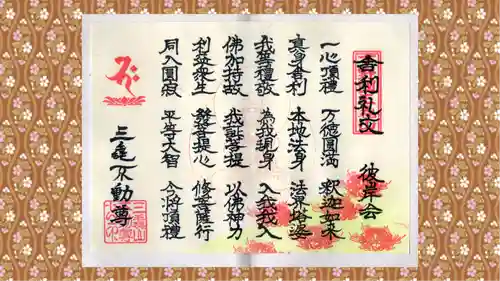 舎利礼文 彼岸会
一心頂禮 万徳圓満 釈迦如来
真身舎利 本地法身 法界塔婆
我等禮敬 為我現身 入我我入
佛加持故 我證菩提 以佛神力
利益衆生 發菩提心 修菩薩行
同入圓寂 平等大智 今将頂禮
三毳不動尊